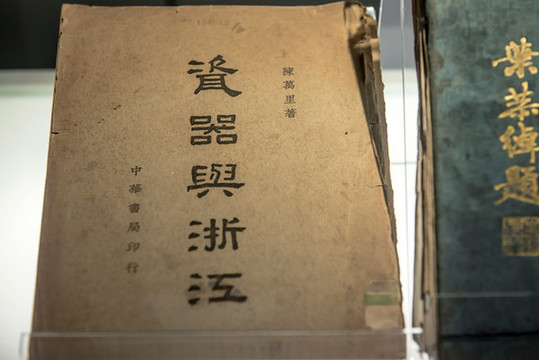 陳萬里著
瓷器與浙江
中華書局印行
葉恭綽題